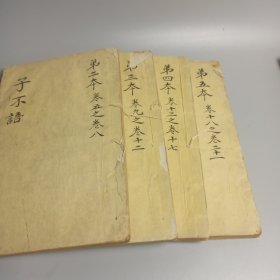 子不語
第二本 卷五之卷八
第三本 卷九之卷十二
第四本 卷十三之卷十七
第五本 卷十八之卷二十一